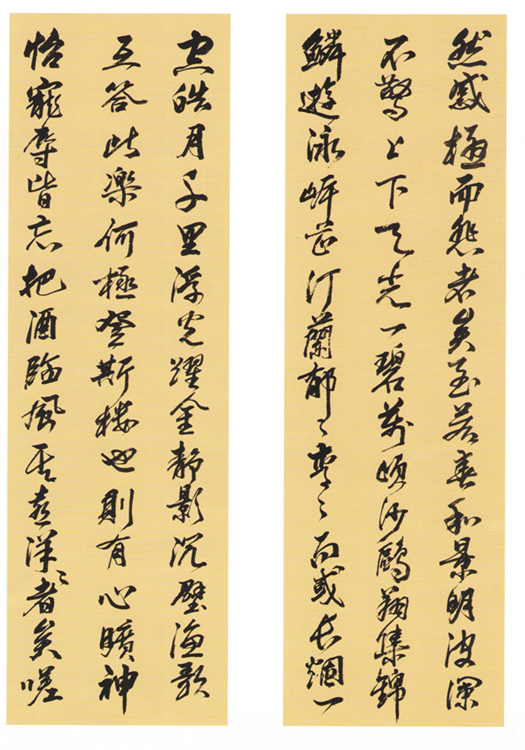 然感極而悲者矣至若春和景明波瀾
不驚上下天光一碧萬頃沙鷗翔集錦
鱗遊泳岸芷汀蘭郁々青々而或長烟一
空皓月千里浮光躍金静影沉璧漁歌
互答此樂何極登斯樓也則有心曠神
怡寵辱皆忘把酒臨風其喜洋々者矣嗟